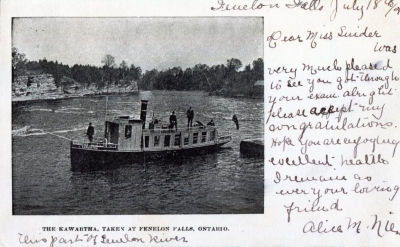 Fenelon Falls July 18th
Dear Miss Snider
was
very much pleased
to see you got through
your exam alright
please accept my
congratulations.
Hope you are enjoying
excellent health
I remain as
ever your loving
friend
Alice M.
THE KAWARTHA, TAKEN AT FENELON FALLS, ONTARIO.
This part of Fenelon River